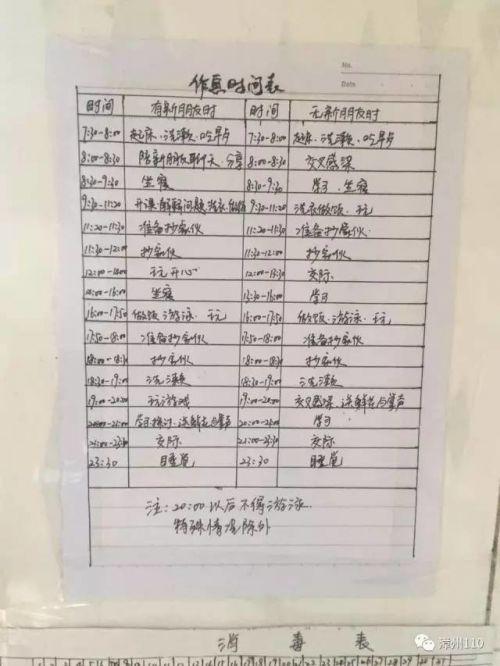 No.
Date
作息时间表
时间 有新朋友时 时间 无新朋友时
7:30-8:00 起床、洗漱、吃早点 7:30-8:00 起床、洗漱、吃早点
8:00-8:30 陪新朋友聊天、分享 8:00-8:30 交叉感染
8:30-9:30 坐寝 8:30-9:30 学习、坐寝
9:30-11:20 开课 解疑问题 洗衣、做饭 9:30-11:20 洗衣做饭、玩
11:20-11:30 准备抄家伙 11:20-11:30 准备抄家伙
11:30-12:00 抄家伙 11:30-12:00 抄家伙
12:00-14:00 玩开心 12:00-13:30 交际
14:00-16:00 坐寝 13:30-16:00 学习
16:00-17:50 做饭、游泳、玩 16:00-17:50 做饭、游泳、玩
17:50-18:00 准备抄家伙 17:50-18:00 准备抄家伙
18:00-18:30 抄家伙 18:00-18:30 抄家伙
18:30-19:00 洗漱 18:30-19:00 洗漱
19:00-20:00 玩游戏 19:00-20:00 交叉感染、送鲜花与掌声
20:00-21:00 学习探讨、送鲜花与掌声 20:00-21:00 学习
21:00-23:30 交际 21:00-23:30 交际
23:30 睡觉 23:30 睡觉
注:20:00以后不得游泳
特殊情况除外
消毒表
漳州110